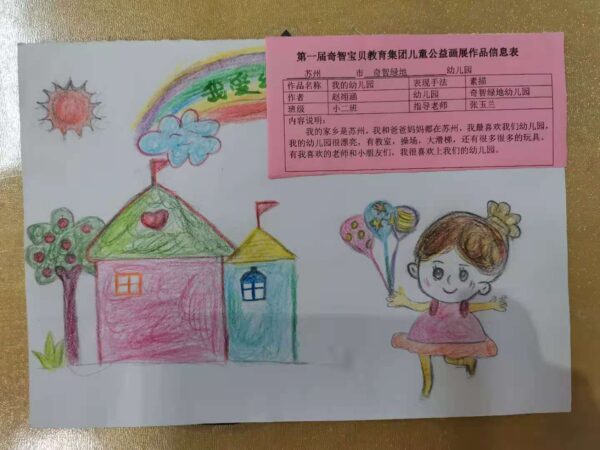 我爱
第一届奇智宝贝教育集团儿童公益画展作品信息表
苏州 市 奇智绿地 幼儿园
作品名称 我的幼儿园 表现手法 素描
作者 赵翊涵 幼儿园 奇智绿地幼儿园
班级 小二班 指导老师 张玉兰
内容说明：
我的家乡是苏州，我和爸爸妈妈都在苏州，我最喜欢我们幼儿园，
我的幼儿园很漂亮，有教室，操场，大滑梯，还有很多很多的玩具，
有我喜欢的老师和小朋友们，我很喜欢上我们的幼儿园。